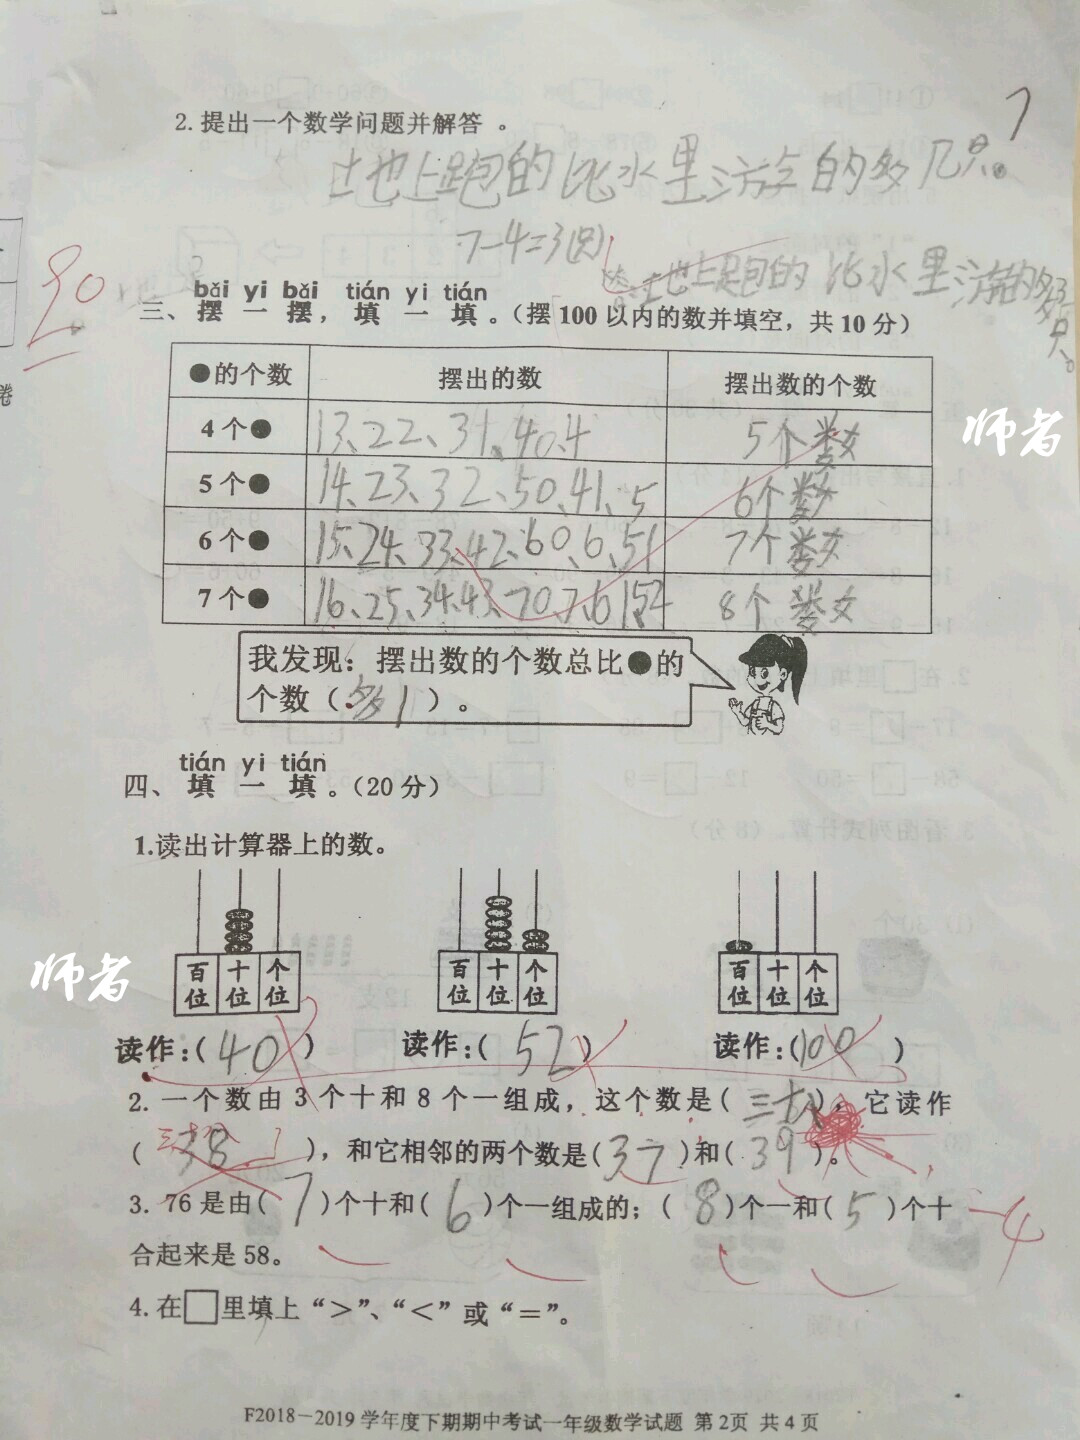 2.提出一个数学问题并解答。
土也上跑的比水里游的多几只。
7-4=3(只)
土也上跑的比水里游的多3只。
90
bǎi yi bǎi tián yi tián
三、摆一摆，填一填。(摆100以内的数并填空，共10分)
●的个数 摆出的数 摆出数的个数
4个● 13、22、31、40、4 5个数
5个● 14、23、32、50、41、5 6个数
6个● 15、24、33、42、60、6、51 7个数
7个● 16、25、34、43、70、7、61 52 8个数
我发现：摆出数的个数总比●的
个数(多1)。
师者
tián yi tián
四、填一填。(20分)
1.读出计算器上的数。
百位 十位 个位 百位 十位 个位 百位 十位 个位
师者
读作:(40) 读作:(52) 读作:(100)
2.一个数由3个十和8个一组成，这个数是(三十八)，它读作
(38)，和它相邻的两个数是(37)和(39)。
3.76是由(7)个十和(6)个一组成的；(8)个一和(5)个十
-4
合起来是58。
4.在□里填上“>”、“<”或“=”。
F2018-2019学年度下期期中考试一年级数学试题 第2页 共4页